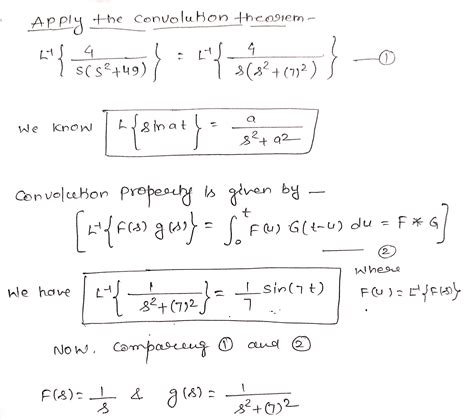 Apply the convolution theorem -
L⁻¹{ 4 / s(s²+49) } = L⁻¹{ 4 / s(s²+(7)²) } — ①
We know L{sinat} = a / s²+a²
Convolution Property is given by —
[L⁻¹{F(s) g(s)} = ∫₀ᵗ F(u) G(t-u) du = F * G] — ②
We have L⁻¹{ 1 / s²+(7)² } = 1/7 sin(7t)
where
F(u) = L⁻¹{F(s)}
Now, Comparing ① and ②
F(s) = 1/s & g(s) = 1 / s²+(7)²